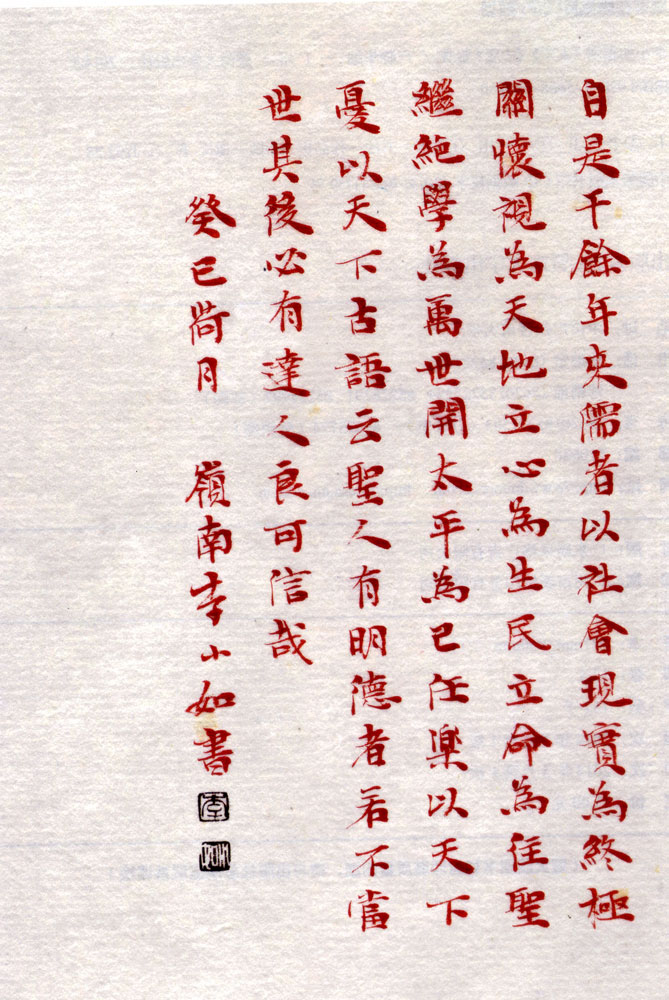 自是千餘年來儒者以社會現實為終極
關懷視為天地立心為生民立命為往聖
繼絕學為萬世開太平為己任樂以天下
憂以天下古語云聖人有明德者若不當
世其後必有達人良可信哉
癸巳荷月 嶺南李小如書